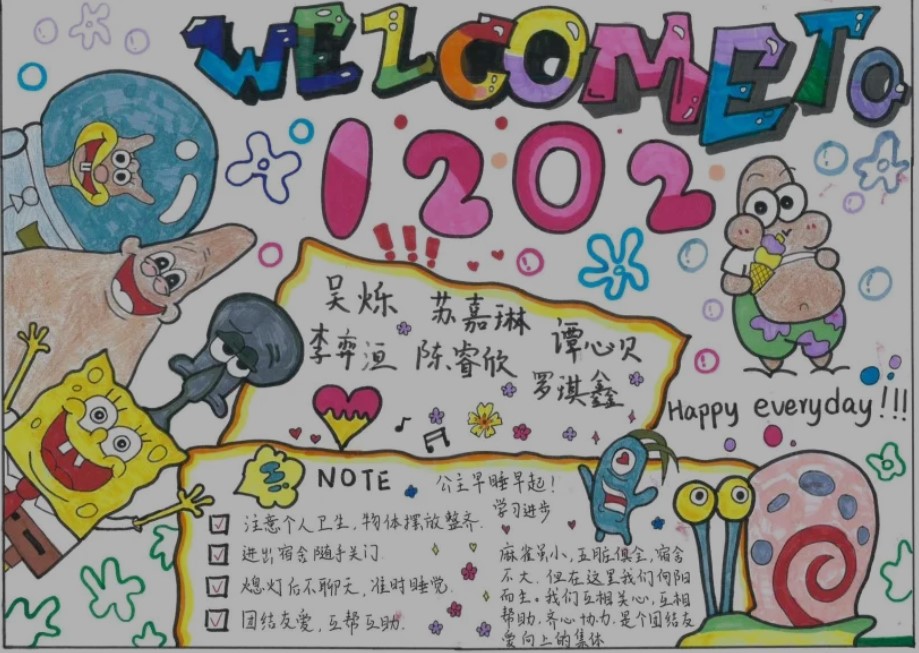 WELCOME TO
1202
!!!
吴烁 苏嘉琳 谭心贝
李弈洹 陈睿欣 罗琪鑫
Happy everyday!!!
NOTE
公主早睡早起!
学习进步
注意个人卫生，物体摆放整齐.
进出宿舍随手关门.
熄灯后不聊天，准时睡觉.
团结友爱，互帮互助.
麻雀虽小，五脏俱全，宿舍
不大，但在这里我们向阳
而生。我们互相关心，互相
帮助，齐心协力，是个团结友
爱向上的集体